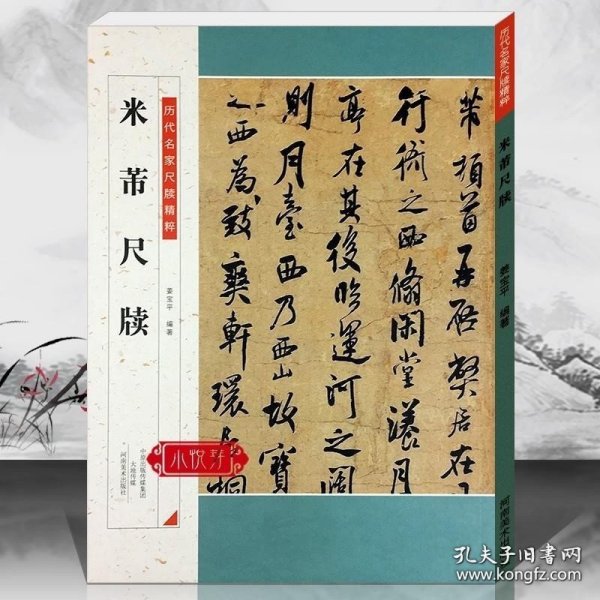 历代名家尺牍精粹
米芾尺牍
姜宝平 编著
中原出版传媒集团
大地传媒
河南美术出版社
芾頓首再啓弊居在
行衙之西翛閑堂漾月
亭在其後臨運河之闊
則月臺西乃西山故寶
之西為致爽軒環居桐
历代名家尺牍精粹
米芾尺牍
姜宝平 编著
河南美术出
孔夫子旧书网
www.kongfz.com